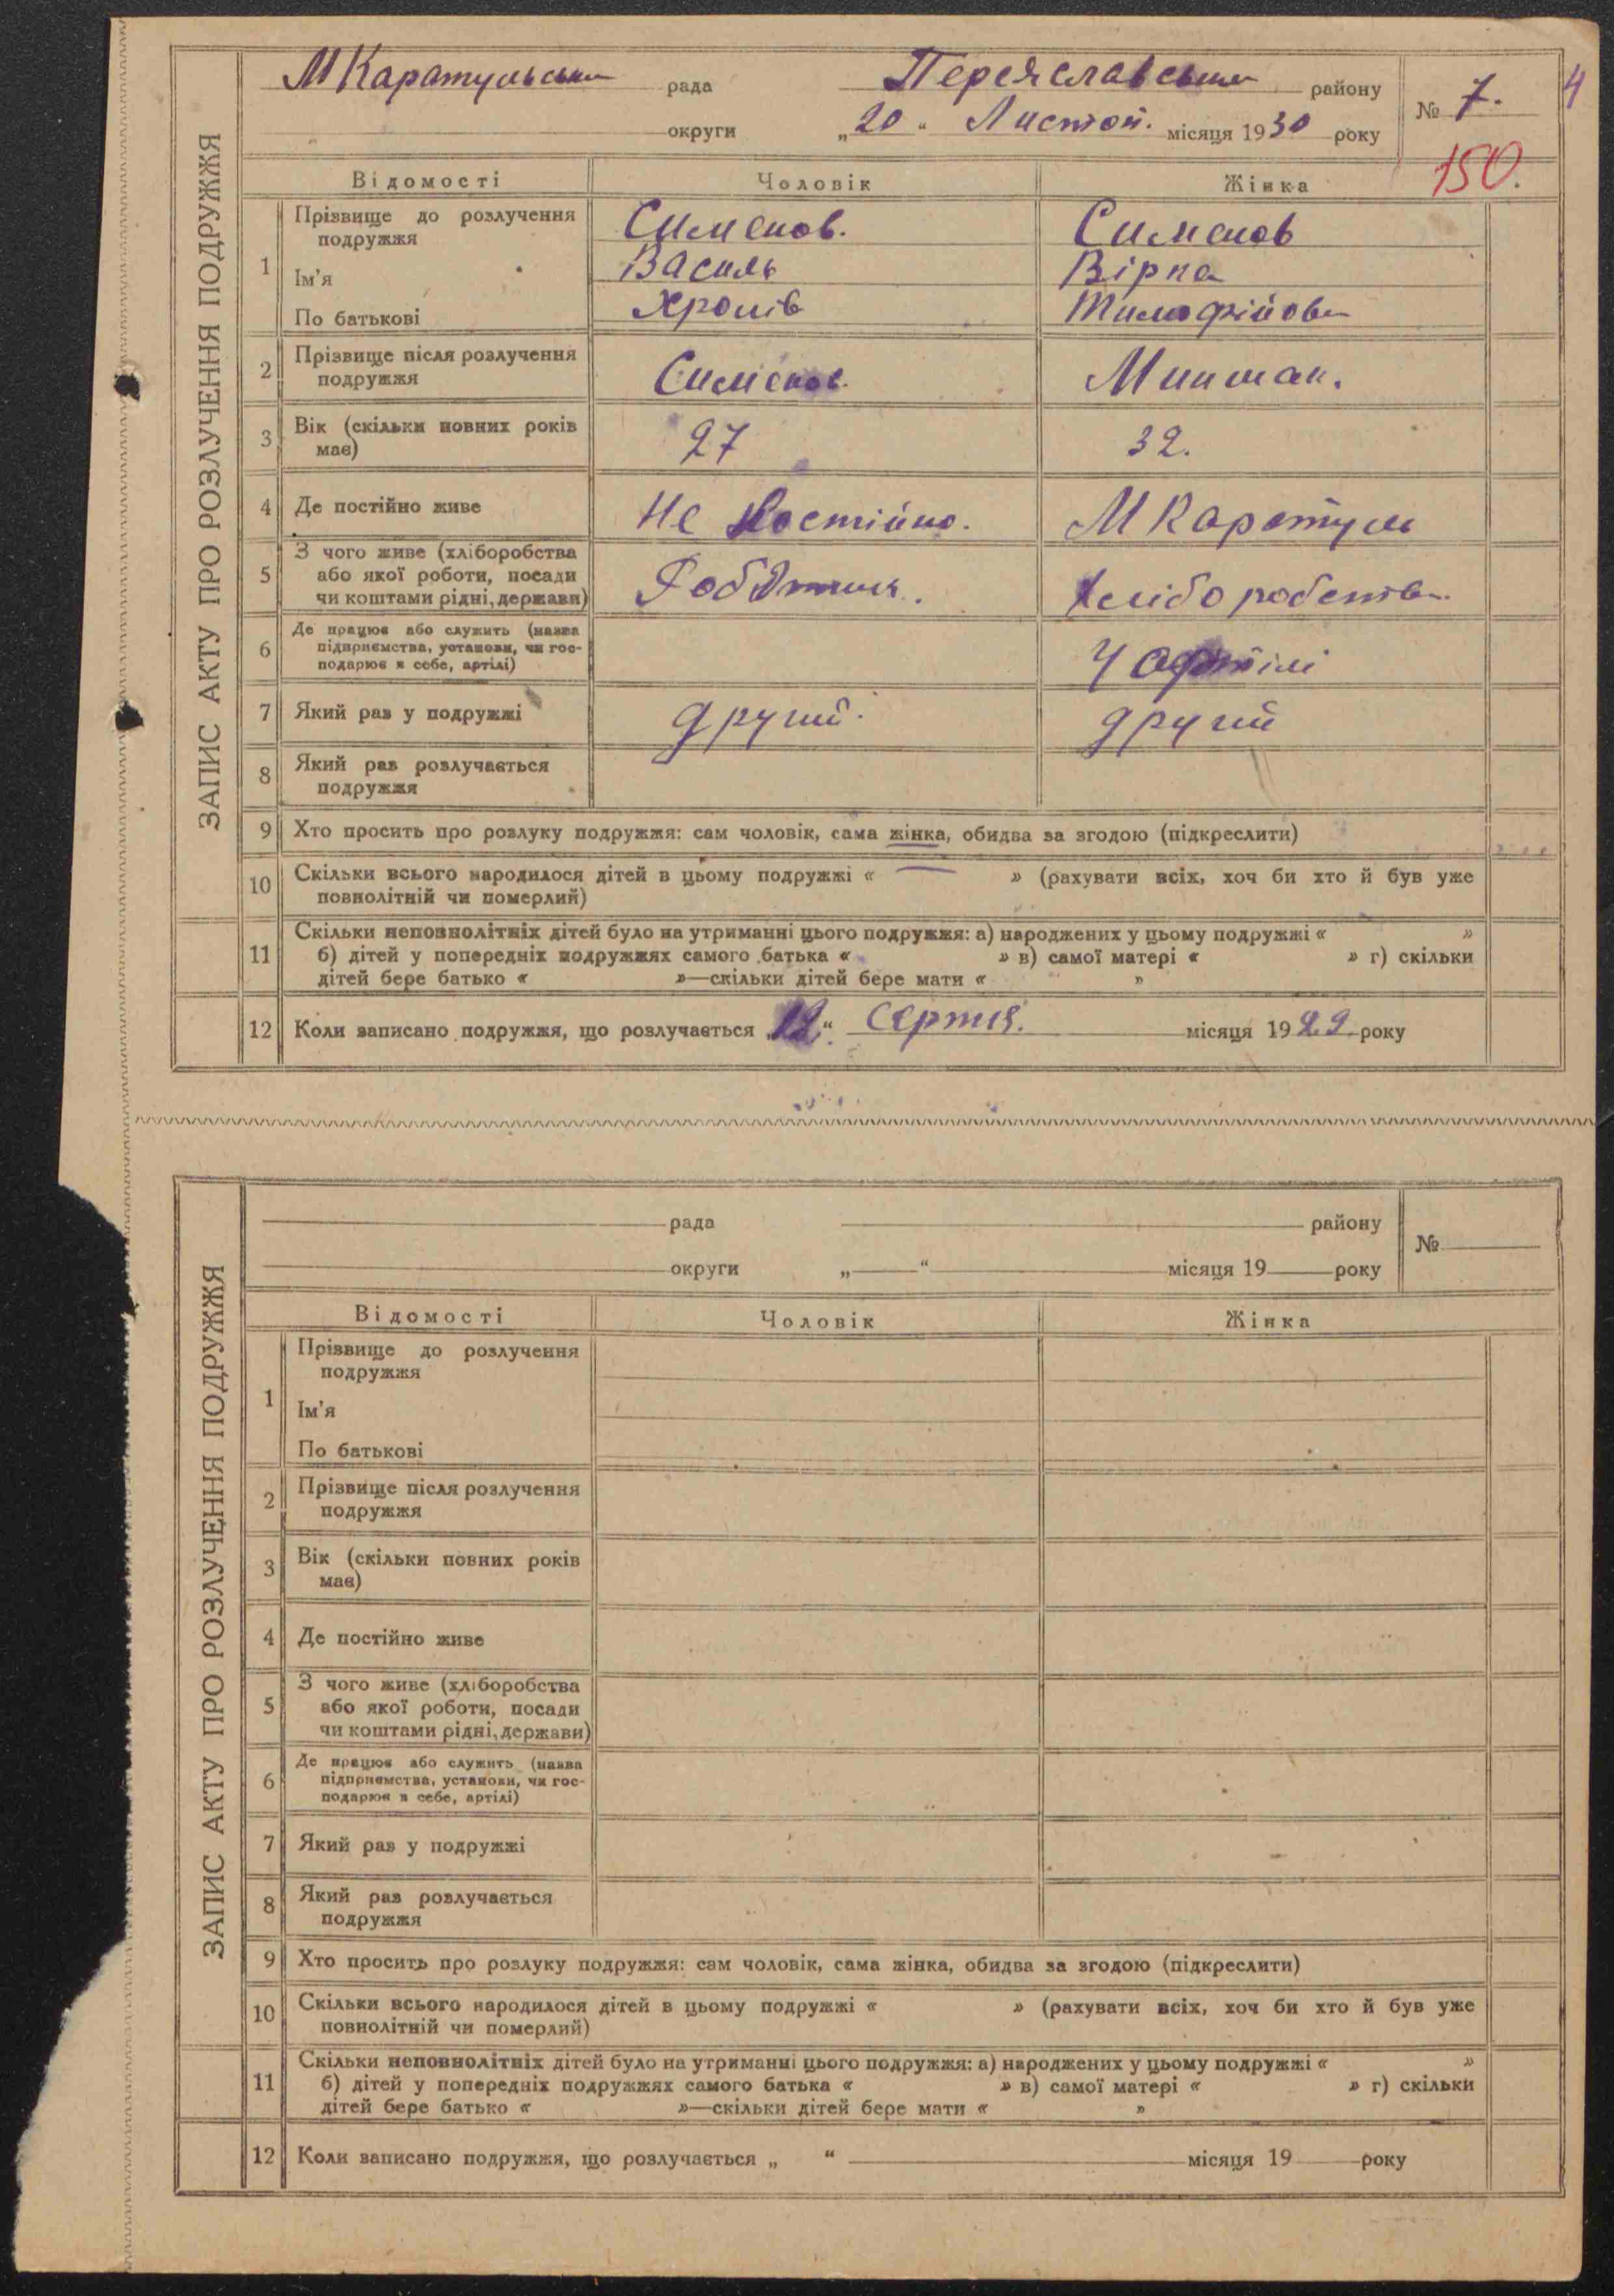 М Каратульська рада Переяславськи району № 7. 4
округи „20“ Листоп. місяця 1930 року
150.
Відомості Чоловік Жінка
1 Прізвище до розлучення подружжя Сименов. Сименов
Ім'я Василь Вірка
По батькові Хролів Тимофійов
2 Прізвище після розлучення подружжя Сименов.
3 Вік (скільки повних років має) 27 32.
4 Де постійно живе Не Постійно. М Каратуль
5 З чого живе (хліборобства або якої роботи, посади чи коштами рідні, держави) Робітник. Хліборобств
6 Де працює або служить (назва підприємства, установи, чи господарює в себе, артілі) У артілі
7 Який раз у подружжі другий. другий
8 Який раз розлучається подружжя
9 Хто просить про розлуку подружжя: сам чоловік, сама жінка, обидва за згодою (підкреслити)
10 Скільки всього народилося дітей в цьому подружжі « — » (рахувати всіх, хоч би хто й був уже
повнолітній чи померлий)
11 Скільки неповнолітніх дітей було на утриманні цього подружжя: а) народжених у цьому подружжі « »
б) дітей у попередніх подружжях самого батька « » в) самої матері « » г) скільки
дітей бере батько « »—скільки дітей бере мати « »
12 Коли записано подружжя, що розлучається „12“ Серпня. місяця 1929 року
ЗАПИС АКТУ ПРО РОЗЛУЧЕННЯ ПОДРУЖЖЯ
рада району №
округи „ “ місяця 19 року
Відомості Чоловік Жінка
1 Прізвище до розлучення
подружжя
Ім'я
По батькові
2 Прізвище після розлучення
подружжя
3 Вік (скільки повних років
має)
4 Де постійно живе
5 З чого живе (хліборобства
або якої роботи, посади
чи коштами рідні, держави)
6 Де працює або служить (назва
підприємства, установи, чи гос-
подарює в себе, артілі)
7 Який раз у подружжі
8 Який раз розлучається
подружжя
9 Хто просить про розлуку подружжя: сам чоловік, сама жінка, обидва за згодою (підкреслити)
10 Скільки всього народилося дітей в цьому подружжі « » (рахувати всіх, хоч би хто й був уже
повнолітній чи померлий)
11 Скільки неповнолітніх дітей було на утриманні цього подружжя: а) народжених у цьому подружжі « »
б) дітей у попередніх подружжях самого батька « » в) самої матері « » г) скільки
дітей бере батько « »—скільки дітей бере мати « »
12 Коли записано подружжя, що розлучається „ “ місяця 19 року
ЗАПИС АКТУ ПРО РОЗЛУЧЕННЯ ПОДРУЖЖЯ